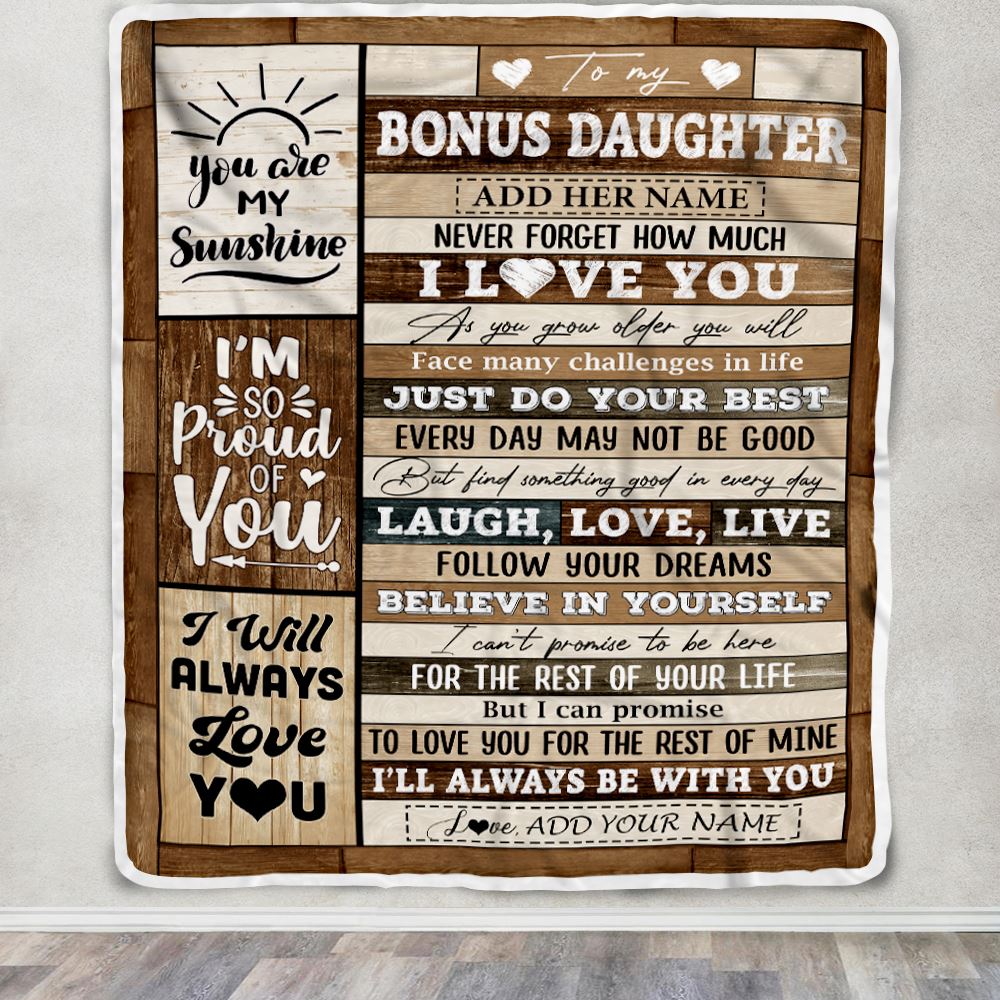 you are
MY
Sunshine
I'M
SO
Proud
OF
You
I Will
ALWAYS
Love
Y♥U
To my
BONUS DAUGHTER
ADD HER NAME
NEVER FORGET HOW MUCH
I L♥VE YOU
As you grow older you will
Face many challenges in life
JUST DO YOUR BEST
EVERY DAY MAY NOT BE GOOD
But find something good in every day
LAUGH, LOVE, LIVE
FOLLOW YOUR DREAMS
BELIEVE IN YOURSELF
I can't promise to be here
FOR THE REST OF YOUR LIFE
But I can promise
TO LOVE YOU FOR THE REST OF MINE
I'LL ALWAYS BE WITH YOU
L♥ve, ADD YOUR NAME